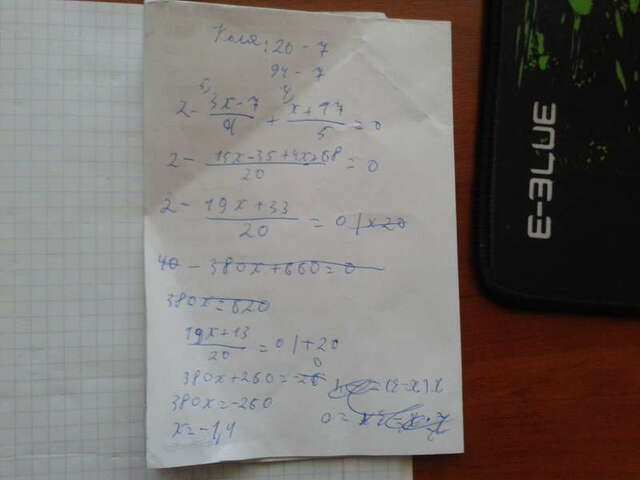 20 - 7
94 - 7
2 - \frac{3x-7}{4} + \frac{x+17}{5} = 0
2 - \frac{15x-35+4x+68}{20} = 0
2 - \frac{19x+33}{20} = 0 | x20
40 - 380x+660=0
380x=620
\frac{19x+13}{20} = 0 | +20
380x+260=0
380x=-260
x=-1,4
E-BLUE